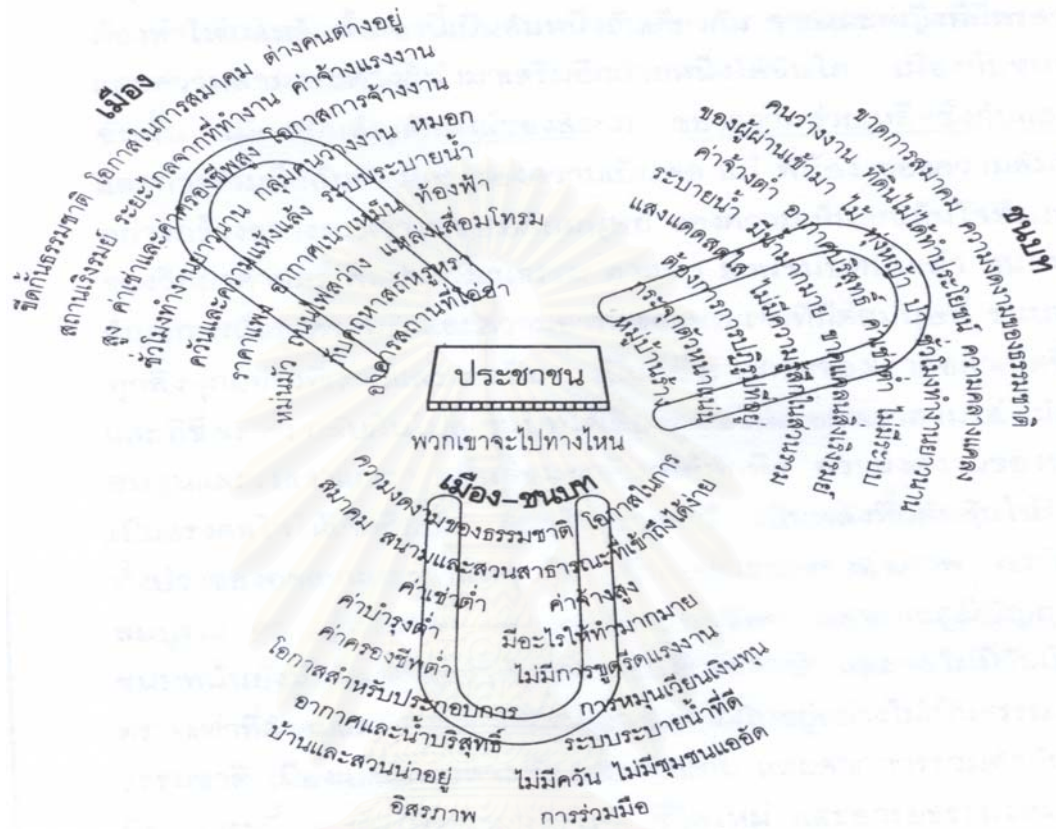 เมือง
ขีดกั้นธรรมชาติ โอกาสในการสมาคม ต่างคนต่างอยู่
สถานเริงรมย์ ระยะไกลจากที่ทำงาน ค่าจ้างแรงงาน
สูง ค่าเช่าและค่าครองชีพสูง โอกาสการจ้างงาน
ชั่วโมงทำงานยาวนาน กลุ่มคนว่างงาน หมอก
ควันและความแห้งแล้ง ระบบระบายน้ำ
ราคาแพง อากาศเน่าเหม็น ท้องฟ้า
หม่นมัว ถนนไฟสว่าง แหล่งเสื่อมโทรม
กับปราสาทหรูหรา
อาคารสถานที่โอ่อ่า
ชนบท
ขาดการสมาคม ความงดงามของธรรมชาติ
คนว่างงาน ที่ดินไม่ได้ทำประโยชน์ ความคลาดแคลง
ของผู้ผ่านเข้ามา ไม้ ทุ่งหญ้า ป่า ชั่วโมงทำงานยาวนาน
ค่าจ้างต่ำ อากาศบริสุทธิ์ ค่าเช่าต่ำ ไม่มีระบบ
ระบายน้ำ มีน้ำมากมาย ขาดแคลนสิ่งเริงรมย์
แสงแดดสดใส ไม่มีความมีสปิริตในส่วนรวม
ต้องการการปฏิรูปที่อยู่
กระจุกตัวหนาแน่น
หมู่บ้านร้าง
ประชาชน
พวกเขาจะไปทางไหน
เมือง-ชนบท
ความงดงามของธรรมชาติ โอกาสในการ
สมาคม สนามและสวนสาธารณะที่เข้าถึงได้ง่าย
ค่าเช่าต่ำ ค่าจ้างสูง
ค่าบำรุงต่ำ มีอะไรให้ทำมากมาย
ค่าครองชีพต่ำ ไม่มีการขูดรีดแรงงาน
โอกาสสำหรับประกอบการ การหมุนเวียนเงินทุน
อากาศและน้ำบริสุทธิ์ ระบบระบายน้ำที่ดี
บ้านและสวนน่าอยู่ ไม่มีควัน ไม่มีชุมชนแออัด
อิสรภาพ การร่วมมือ